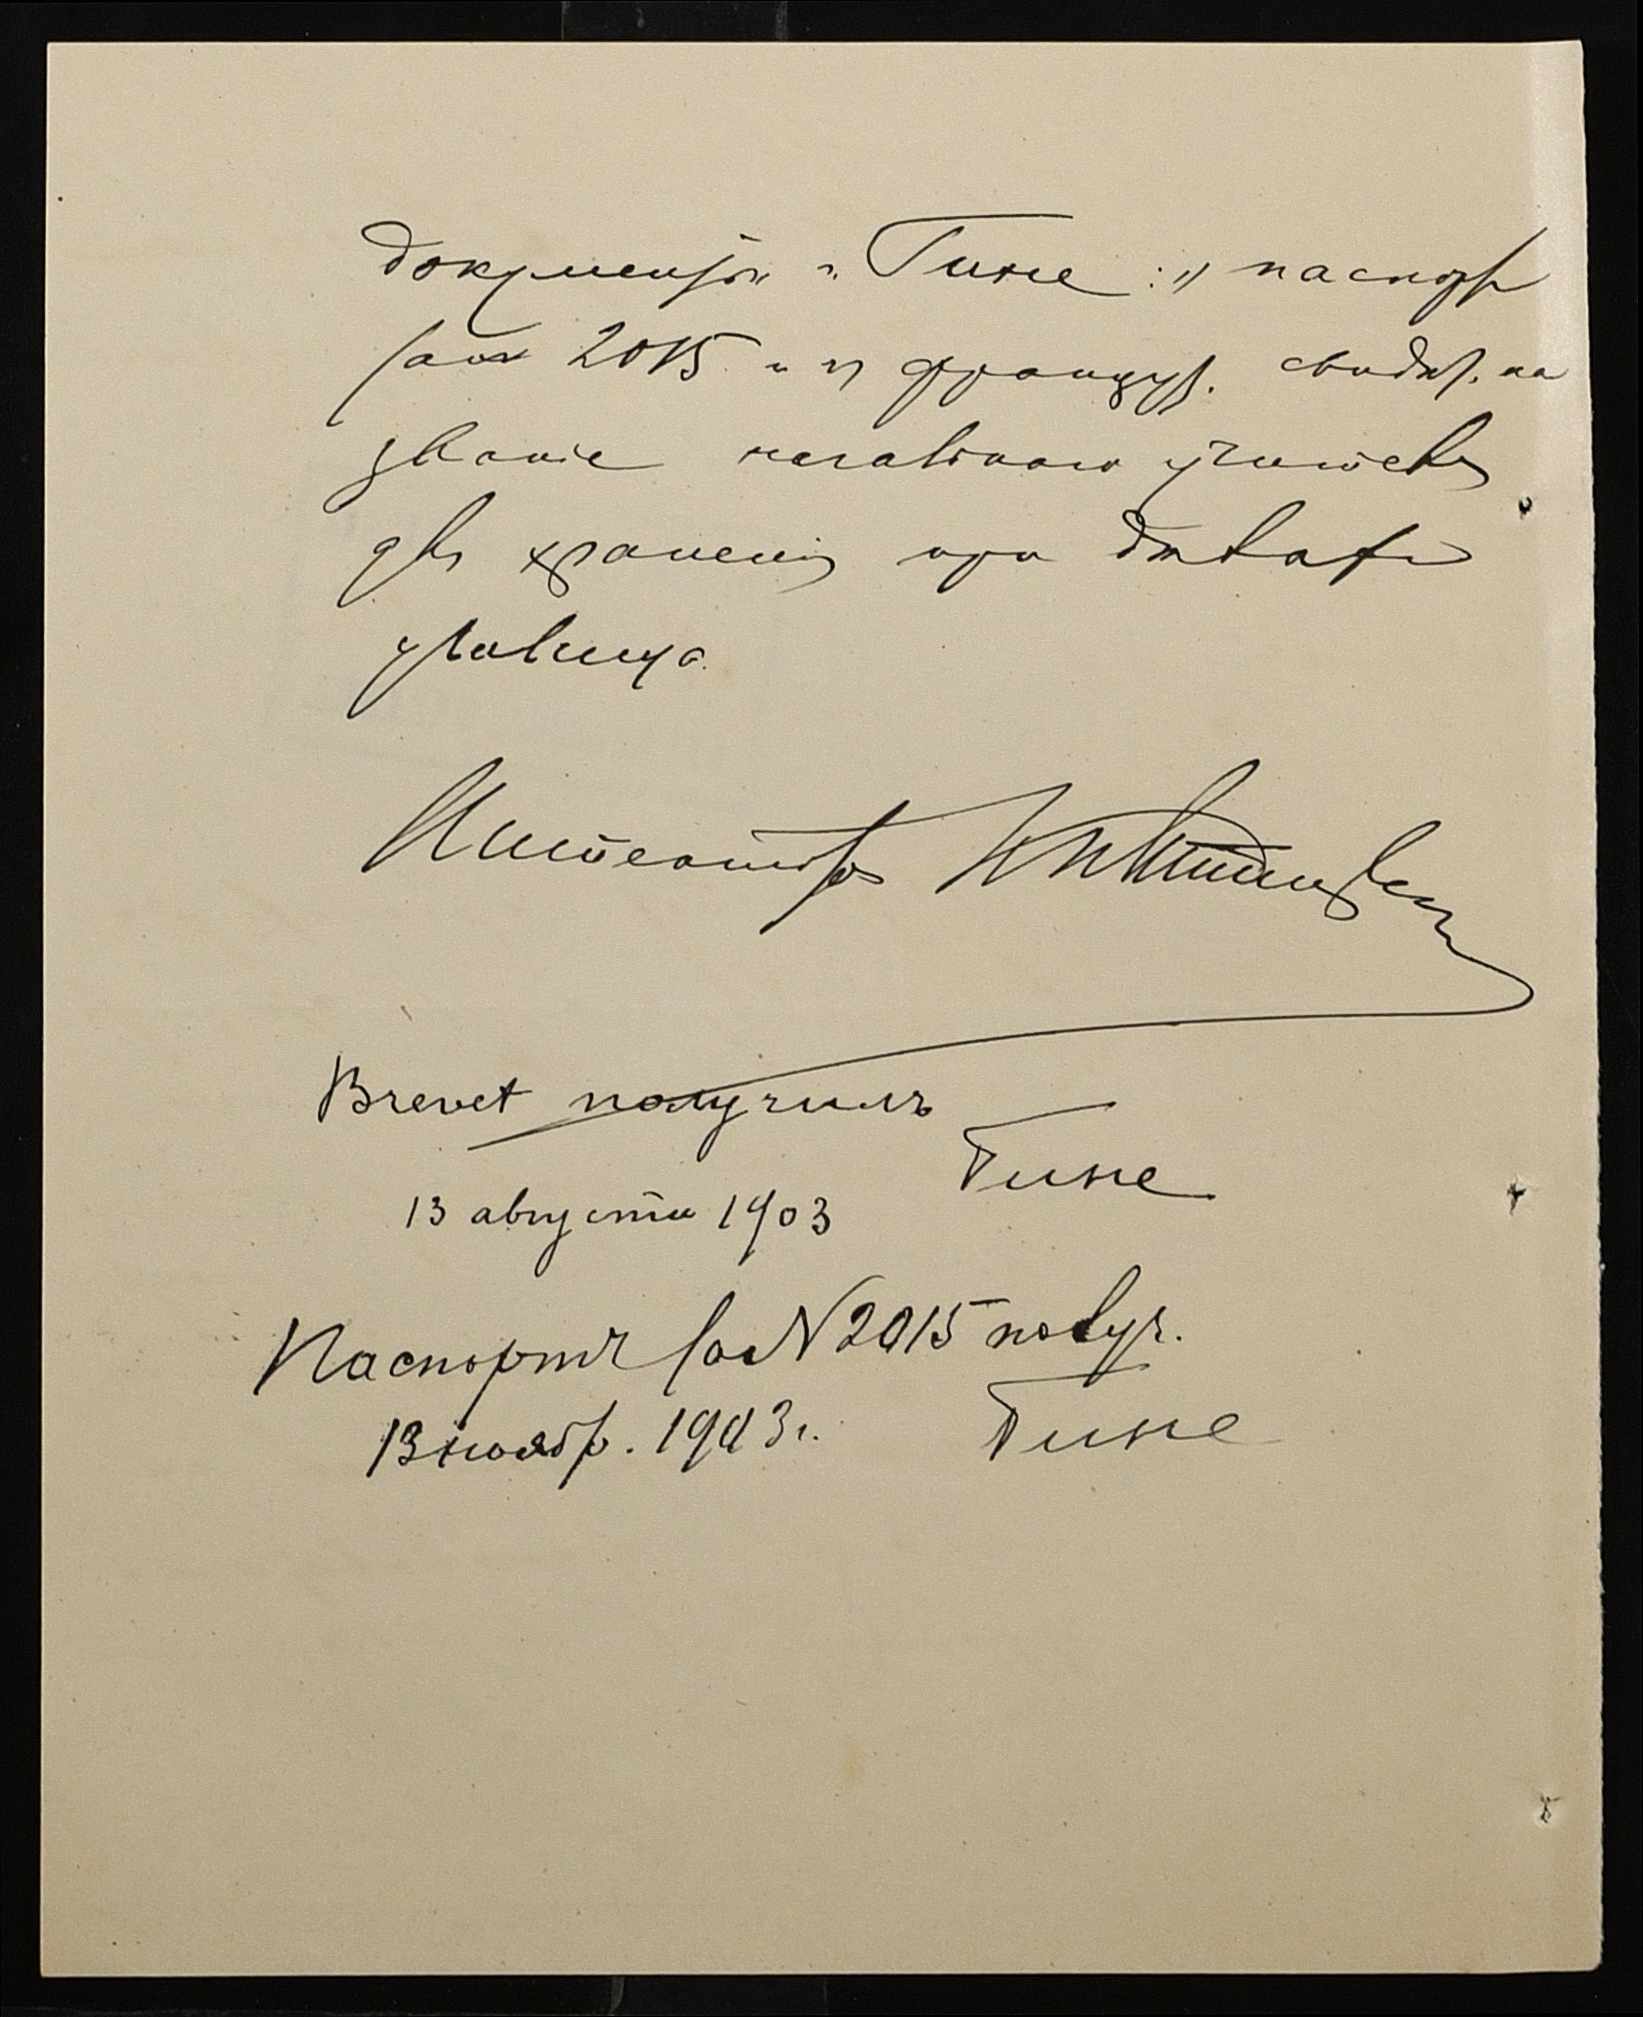 документы г. Гине: 1) паспорт
за № 2015 и 2) француз. свидѣт. на
званіе начальнаго учителя
для храненія при дѣлахъ
училища.
Инспекторъ
Brevet получилъ
Гине
13 августа 1903
Паспортъ за № 2015 получ.
13 ноябр. 1903 г. Гине